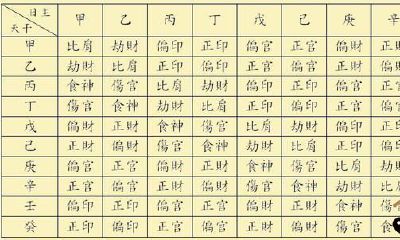 日主
天干 甲 乙 丙 丁 戊 己 庚 辛
甲 比肩 劫財 偏印 正印 偏官 正官 偏財 正
乙 劫財 比肩 正印 偏印 正官 偏官 正財 偏
丙 食神 傷官 比肩 劫財 偏印 正印 偏官 正
丁 傷官 食神 劫財 比肩 正印 偏印 正官 偏
戊 偏財 正財 食神 傷官 比肩 劫財 偏印 正
己 正財 偏財 傷官 食神 劫財 比肩 正印 偏
庚 偏官 正官 偏財 正財 食神 傷官 比肩 劫
辛 正官 偏官 正財 偏財 傷官 食神 劫財 比
壬 偏印 正印 偏官 正官 偏財 正財 食神 傷
癸 正印 偏印 正官 偏官 正財 偏財 傷官 食